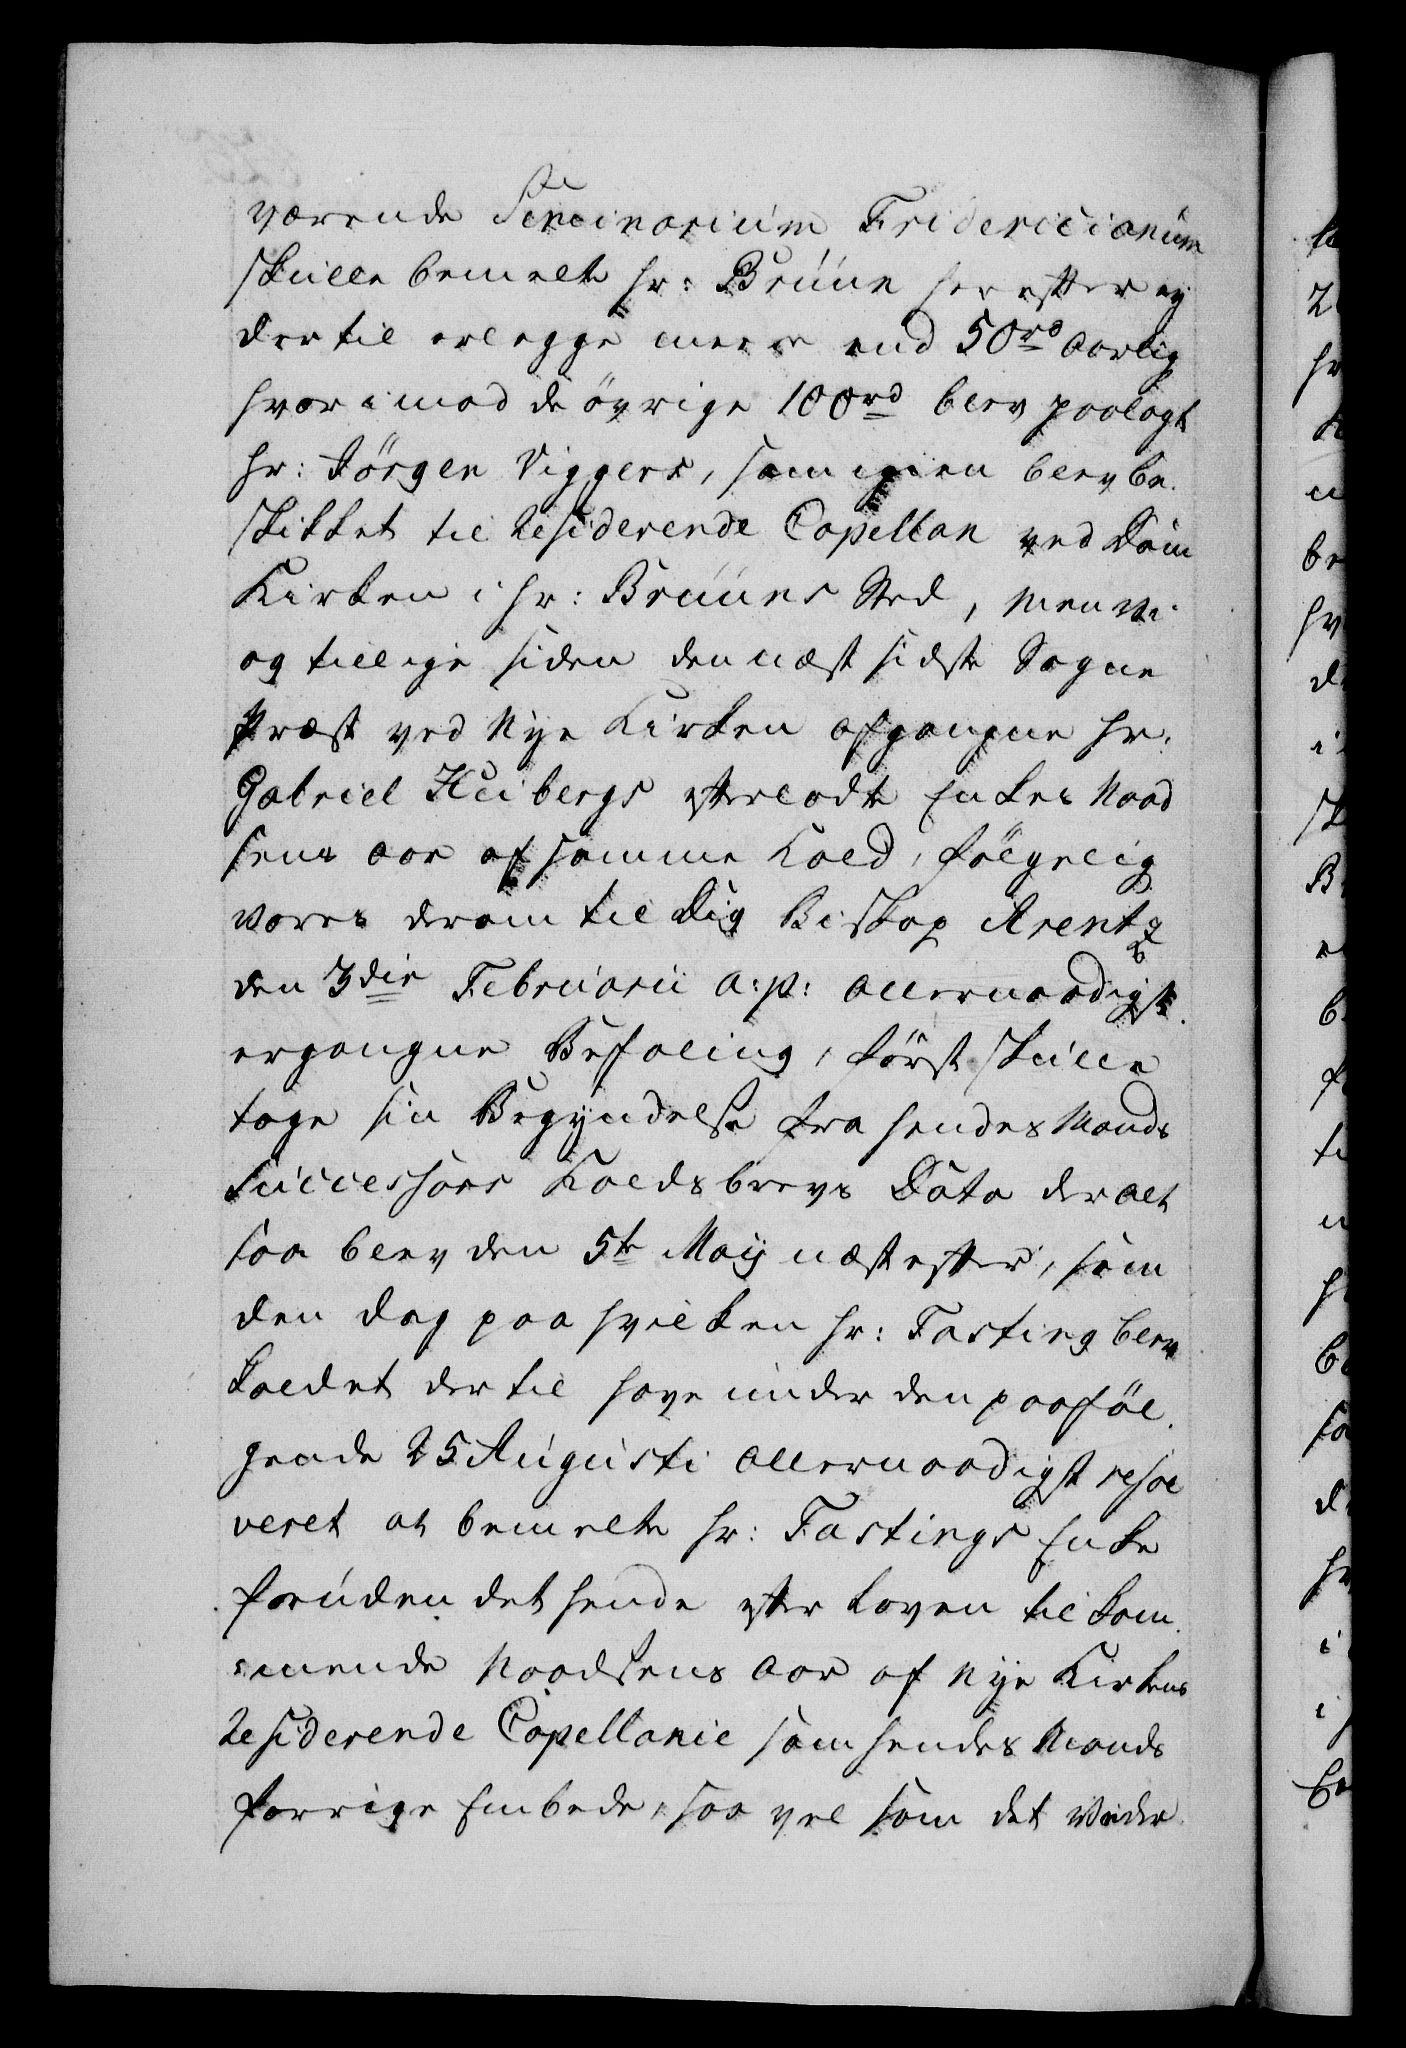 værende Seminarium Fridericianum
skulle bemelte Hr: Bruun her efter ey
dertil erlegge meere end 50rd aarlig
hvorimod de övrige 100rd blev paalagt
Hr: Jörgen Viggers, som igien blev be
skikket til Residerende Capellan ved Dom
Kirken i Hr: Bruuns Sted, men
og tillige siden den næst sidste Sogne
Præst ved Nye Kirken afgangne Hr:
Gabriel Heibergs efterladte Enkes Naad
sens aar af samme Kald, fölgelig
vores derom til Dig Biskop Arentz
den 3die Februarii a: p: allernaadigst
ergangne Befaling, först skulle
tage sin Begyndelse fra hendes Mands
Successors Kaldsbrevs Dato der alt
saa blev den 5te Maij næstefter, som
den dag paa hvilken Hr: Fasting blev
kaldet dertil have under den paaföl
gende 25 Augusti allernaadigst resol
veret at bemelte Hr: Fastings Enke
foruden det hende efter Loven tilkom
mende Naadsens aar af Nye Kirkens
Residerende Capellanie som hendes Mands
forrige Embede, saa vel som det under